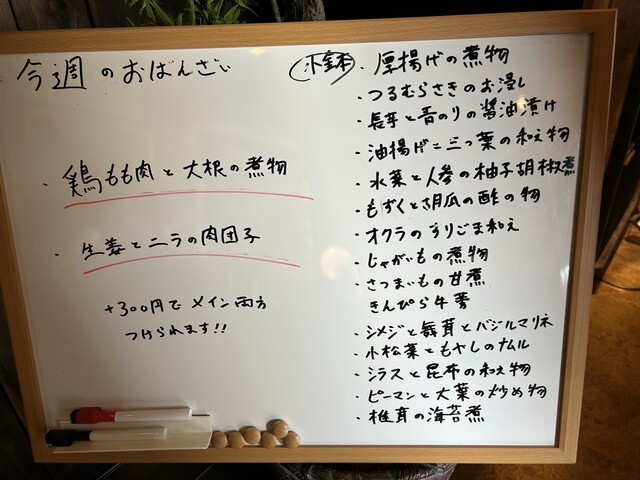 今週のおばんざい
・鶏もも肉と大根の煮物
・生姜とニラの肉団子
+300円でメイン両方
つけられます!!
小鉢
・厚揚げの煮物
・つるむらさきのお浸し
・長芋と青のりの醤油漬け
・油揚げと三つ葉の和え物
・水菜と人参の柚子胡椒煮
・もずくと胡瓜の酢の物
・オクラのすりごま和え
・じゃがいもの煮物
・さつまいもの甘煮
きんぴら牛蒡
・シメジと舞茸とバジルマリネ
・小松菜ともやしのナムル
・シラスと昆布の和え物
・ピーマンと大葉の炒め物
・椎茸の海苔煮